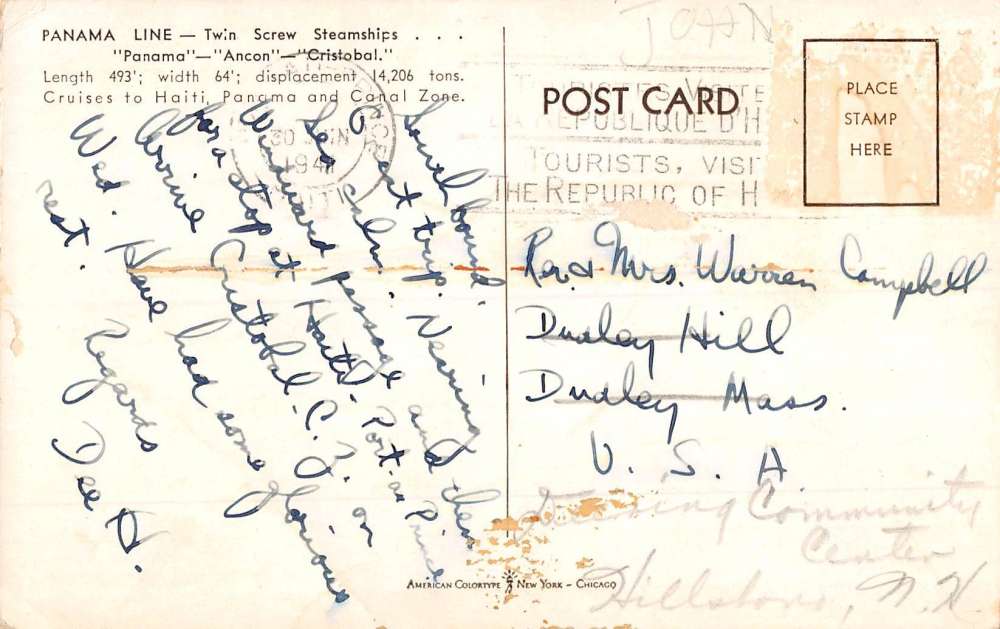 PANAMA LINE — Twin Screw Steamships . . .
"Panama"—"Ancon"—"Cristobal."
Length 493'; width 64'; displacement 14,206 tons.
Cruises to Haiti, Panama and Canal Zone.
South bound.
Great trip. Nearing
Sea calm.
Windward passage and then
for a stop at Haiti. Port-au Prince
Arrive Cristobal. C. Z. on
Wed. Have had some glorious
rest.
Regards
Dee H.
JOHN
POST CARD
TOURISTES, VISITE
LA REPUBLIQUE D'H
TOURISTS, VISIT
THE REPUBLIC OF H
PLACE
STAMP
HERE
Rev. & Mrs. Warren Campbell
Dudley Hill
Dudley Mass.
U. S. A
Deering Community
Center
Hillsboro, N. H.
AMERICAN COLORTYPE NEW YORK – CHICAGO